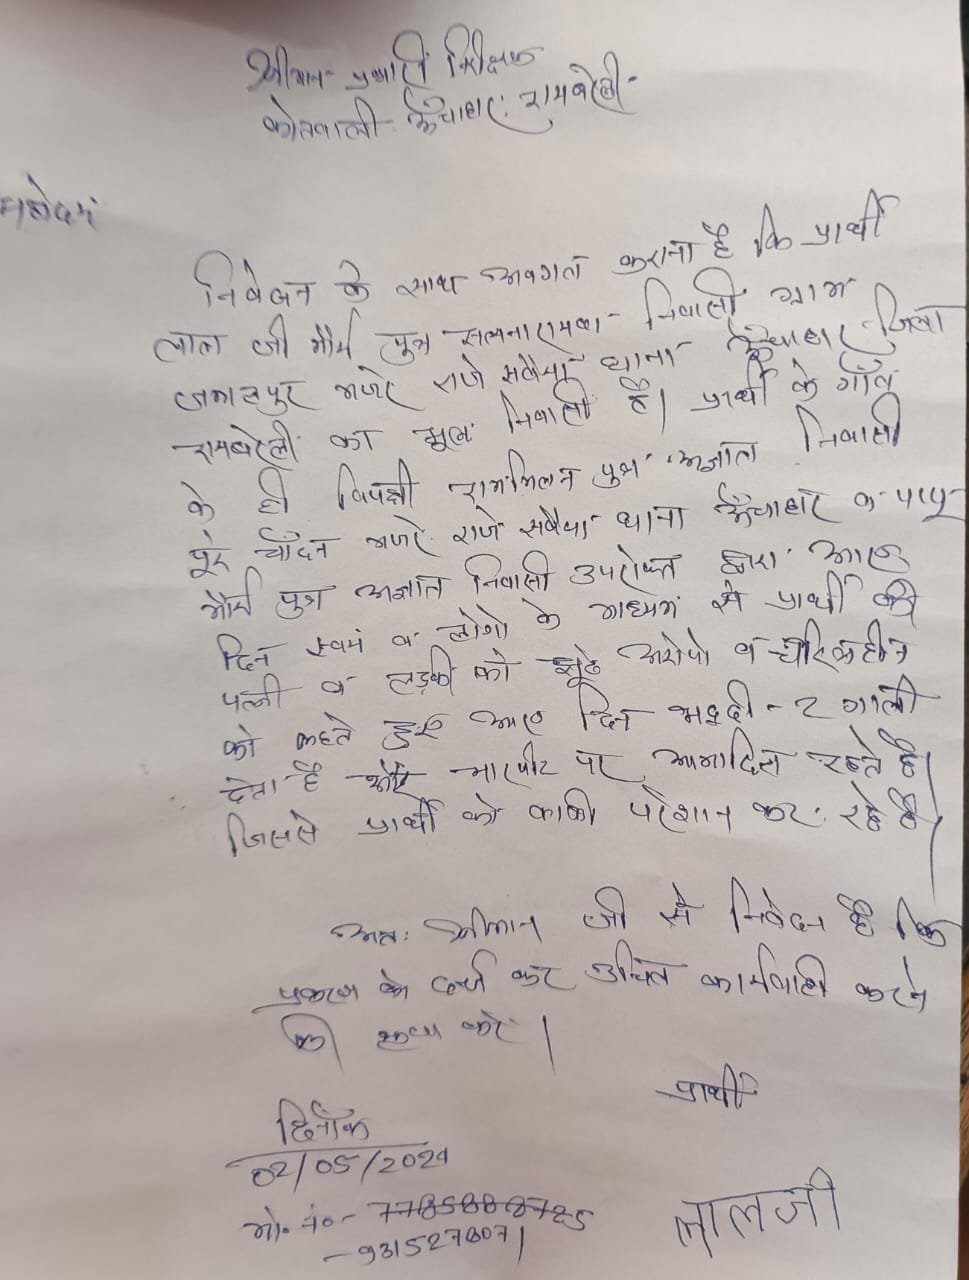 श्रीमान प्रभारी निरीक्षक
कोतवाली ऊँचाहार रायबरेली-
महोदय
निवेदन के साथ अवगत कराना है कि प्रार्थी
लाल जी मौर्य पुत्र निवासी ग्राम
जमालपुर मजरे राजे सवैया थाना ऊँचाहार जिला
रायबरेली का मूल निवासी है। प्रार्थी के गाँव
के ही विपक्षी राममिलन पुत्र अज्ञात निवासी
पूरे चाँदन मजरे राजे सवैया थाना ऊँचाहार व पप्पू
मौर्य पुत्र अज्ञात निवासी उपरोक्त द्वारा आए
दिन स्वयं व लोगो के माध्यम से प्रार्थी की
पत्नी व लड़की को झूठे अरोपो व चरित्रहीन
को कहते हुए आए दिन भद्दी-२ गाली
देता है और मारपीट पर आमादित रहते है।
जिससे प्रार्थी को काफी परेशान कर रहे है।
अतः श्रीमान जी से निवेदन है कि
प्रकरण को दर्ज कर उचित कार्यवाही करने
की कृपा करें।
प्रार्थी
दिनाँक
02/05/2024
मो० नं०- 7785888725
-9315278071
लालजी